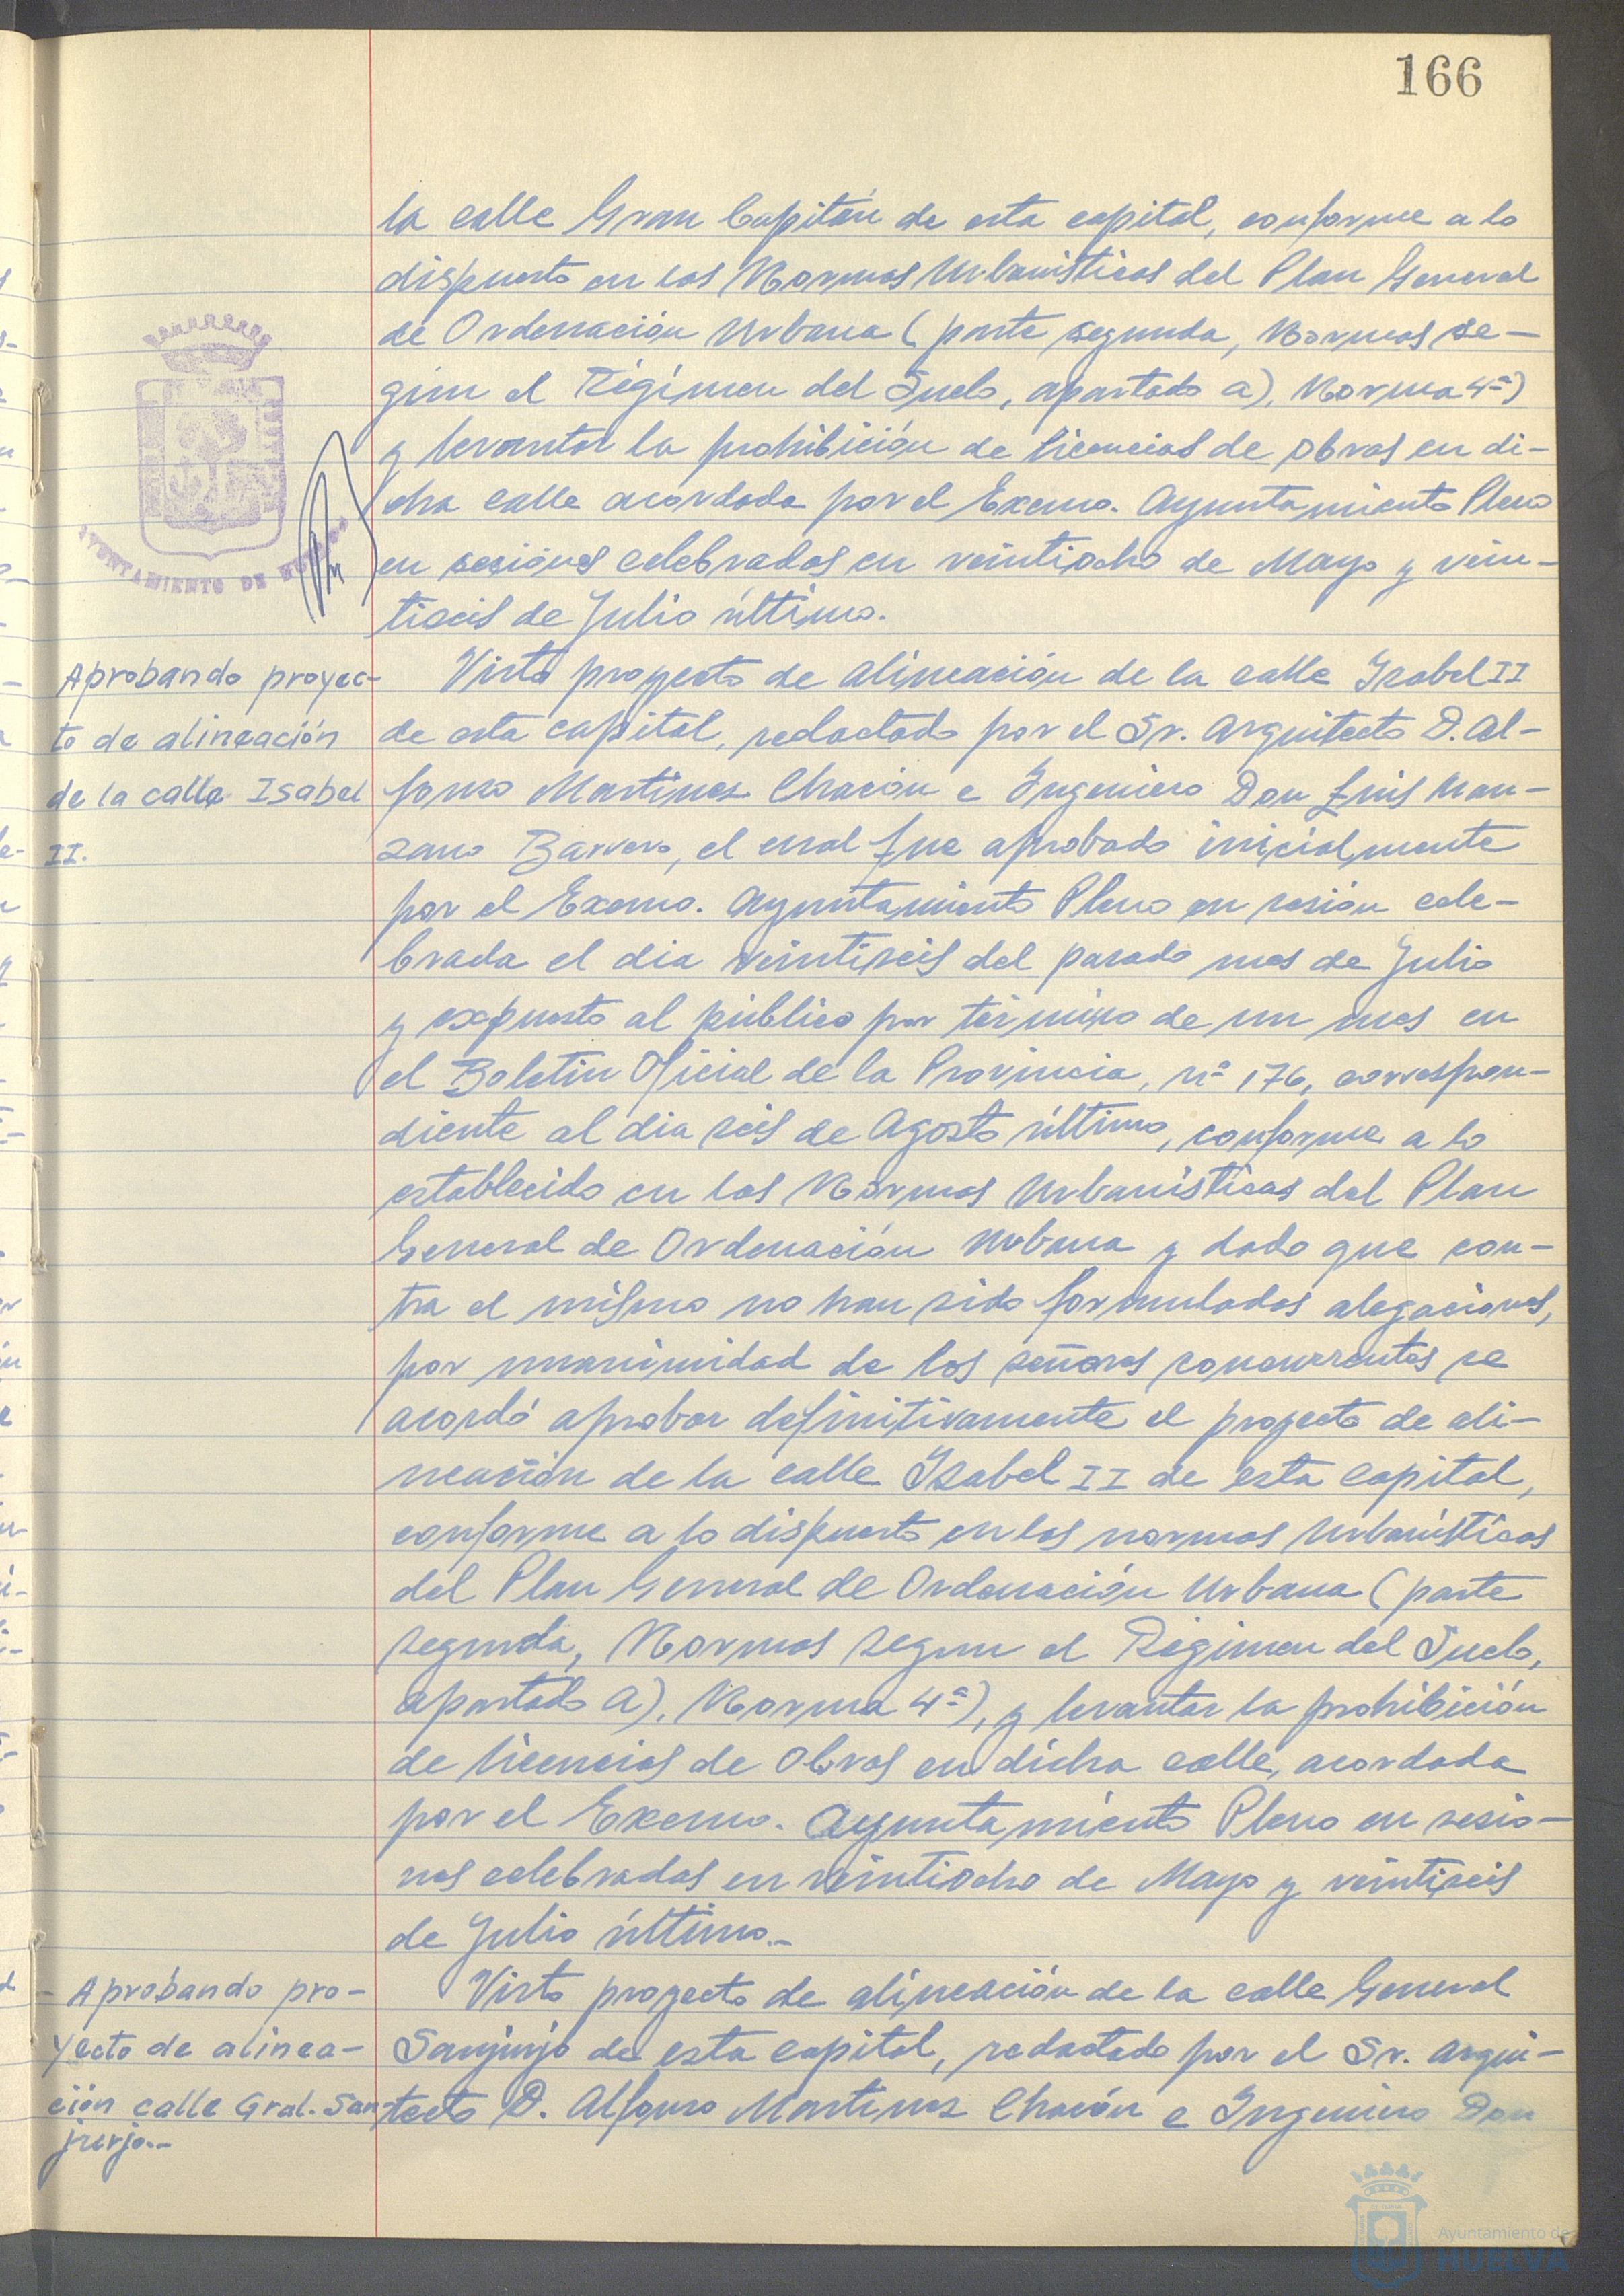 166
la calle Gran Capitán de esta capital, conforme a lo
dispuesto en las Normas Urbanísticas del Plan General
de Ordenación Urbana (parte segunda, Normas se-
gún el Régimen del Suelo, apartado a), Norma 4ª)
y levantar la prohibición de licencias de obras en di-
cha calle acordada por el Excmo. Ayuntamiento Pleno
en sesiones celebradas en veintiocho de Mayo y vein-
tiseis de Julio último.
AYUNTAMIENTO DE
Aprobando proyec-
to de alineación
de la calle Isabel
II.
Visto proyecto de alineación de la calle Isabel II
de esta capital, redactado por el Sr. Arquitecto D. Al-
fonso Martinez Chacón e Ingeniero Don Luis Man-
zano Barrero, el cual fue aprobado inicialmente
por el Excmo. Ayuntamiento Pleno en sesión cele-
brada el dia veintiseis del pasado mes de Julio
y expuesto al público por término de un mes en
el Boletin Oficial de la Provincia, nº 176, correspon-
diente al dia seis de Agosto último, conforme a lo
establecido en las Normas Urbanísticas del Plan
General de Ordenación Urbana y dado que con-
tra el mismo no han sido formuladas alegaciones,
por unanimidad de los señores concurrentes se
acordó aprobar definitivamente el proyecto de ali-
neación de la calle Isabel II de esta capital,
conforme a lo dispuesto en las normas Urbanísticas
del Plan General de Ordenación Urbana (parte
segunda, Normas segun el Régimen del Suelo,
apartado a), Norma 4ª), y levantar la prohibición
de licencias de Obras en dicha calle, acordada
por el Excmo. Ayuntamiento Pleno en sesio-
nes celebradas en veintiocho de Mayo y veintiseis
de Julio último.-
- Aprobando pro-
yecto de alinea-
ción calle Gral. San-
jurjo.-
Visto proyecto de alineación de la calle General
Sanjurjo de esta capital, redactado por el Sr. Arqui-
tecto D. Alfonso Martinez Chacón e Ingeniero Don
Ayuntamiento de
HUELVA